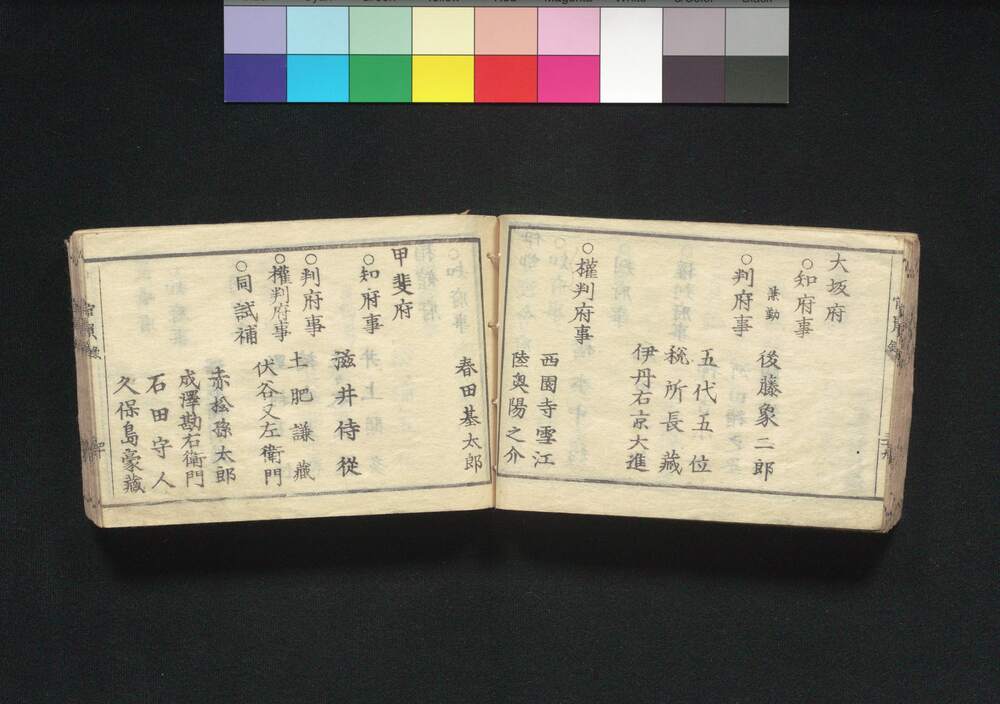 大坂府
○知府事
兼勤
後藤象二郎
○判府事
五代五位
税所長藏
伊丹右京大進
○權判府事
西園寺雪江
陸奥陽之介
春田基太郎
甲斐府
○知府事
滋井侍從
○判府事
土肥謙藏
○權判府事
伏谷又左衛門
○同試補
赤松孫太郎
成澤勘右衛門
石田守人
久保島豪藏